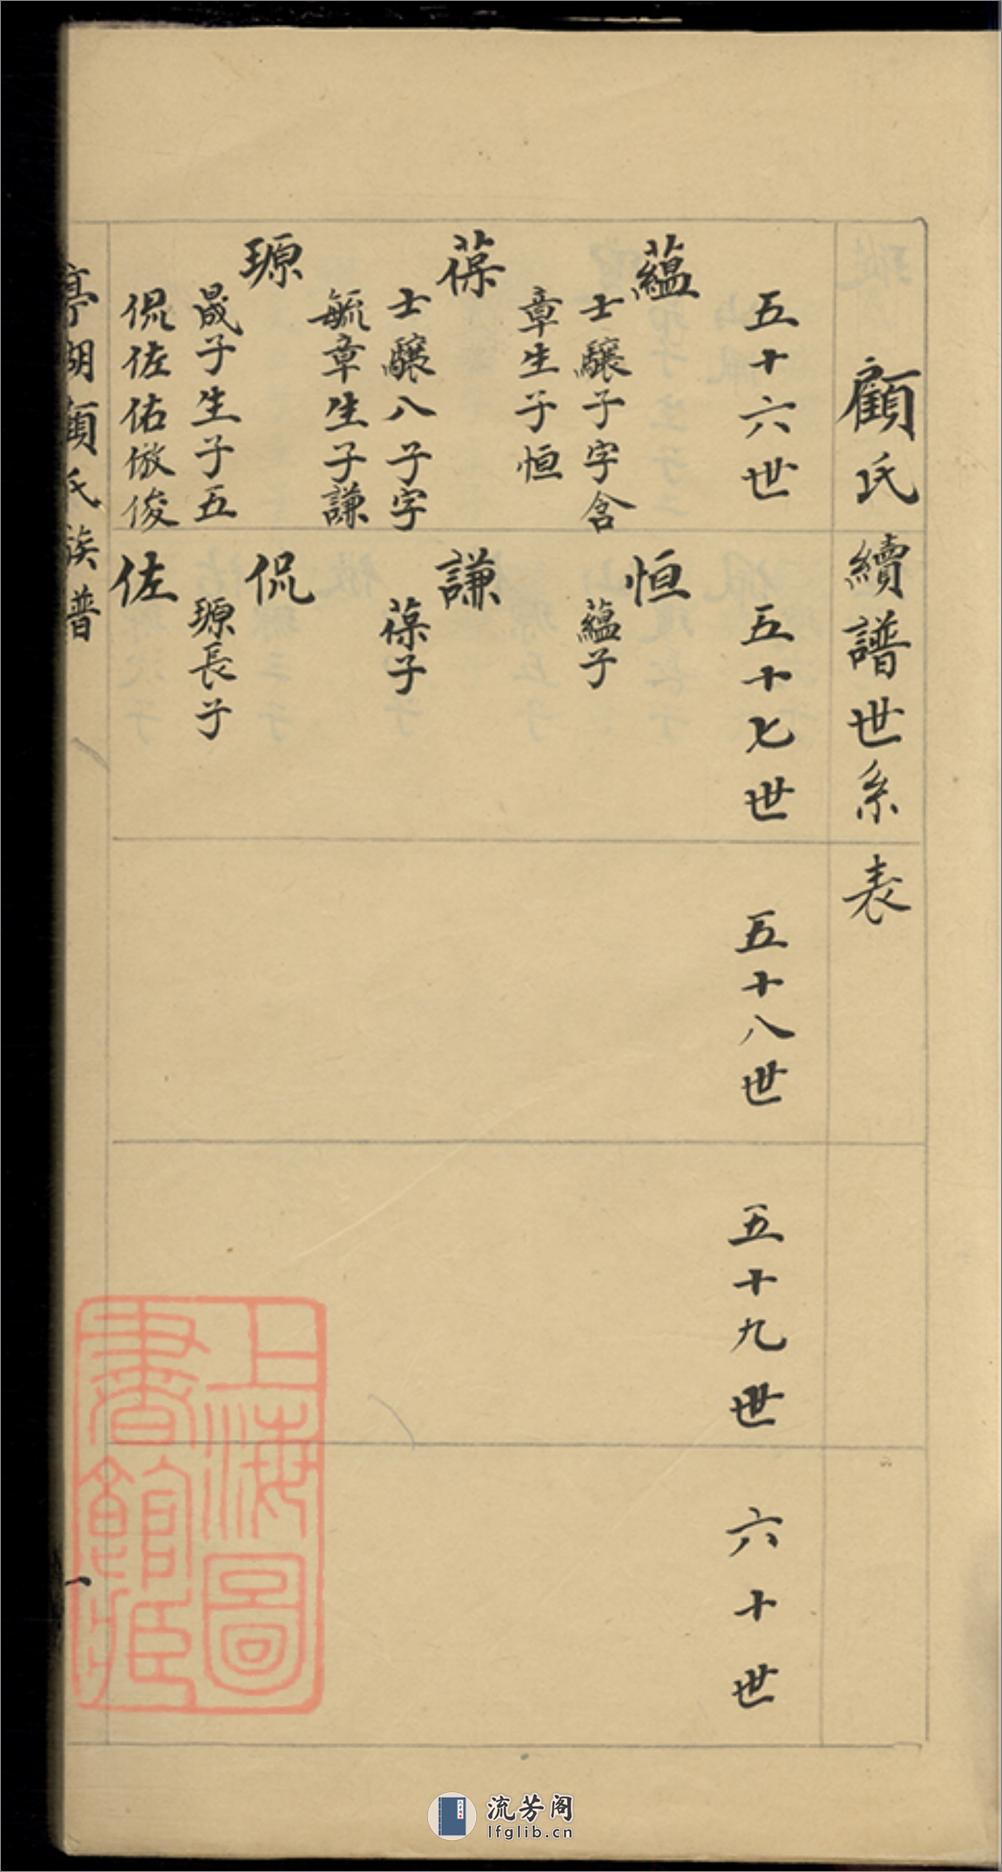 顧氏續譜世系表
五十六世
五十七世
五十八世
五十九世
六十世
蘊
士驤子字含
章生子恒
葆
士驤八子字
毓章生子謙
㻋
晟子生子五
侃佐佑傲俊
恒
蘊子
謙
葆子
侃
㻋長子
佐
亭湖顧氏族譜
一
上海圖書館藏
流芳阁
lfglib.cn